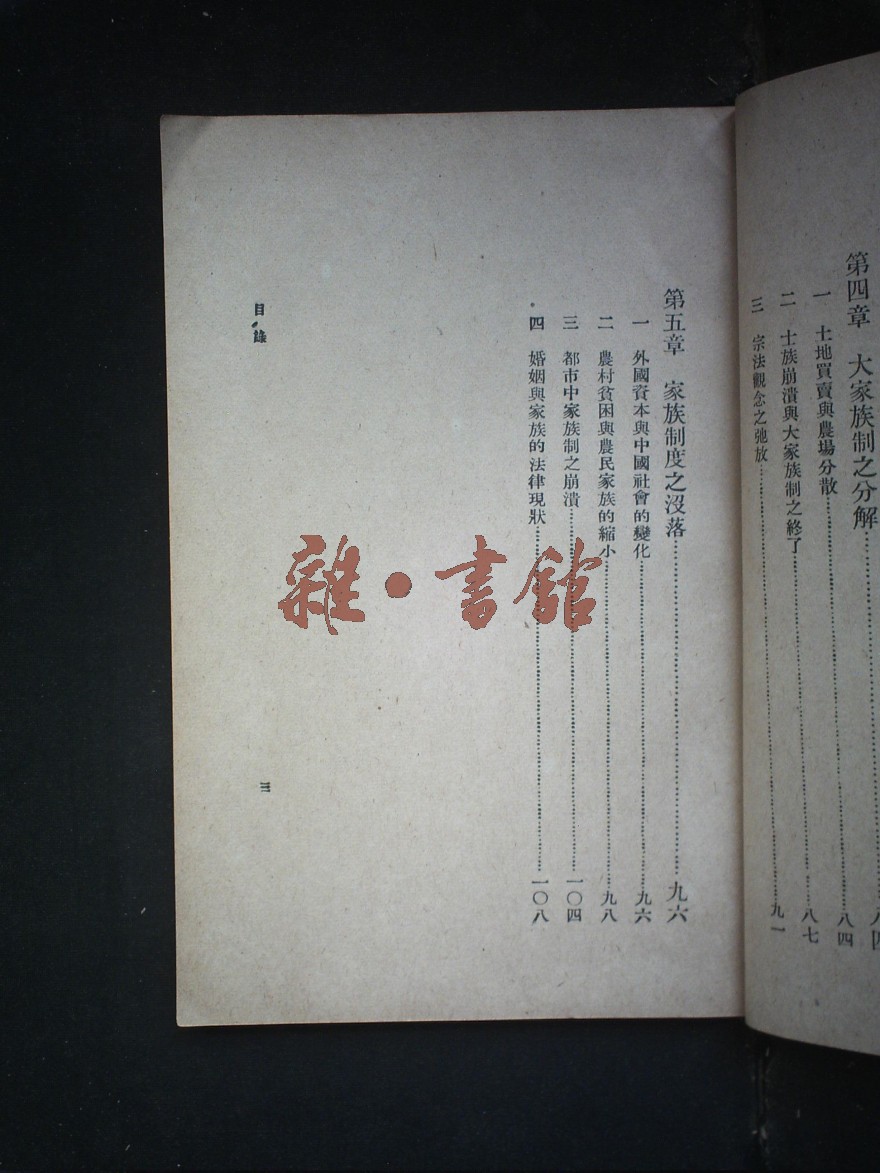 第四章 大家族制之分解……八四
一 土地買賣與農場分散……八四
二 士族崩潰與大家族制之終了……八七
三 宗法觀念之弛放……九一
第五章 家族制度之沒落……九六
一 外國資本與中國社會的變化……九六
二 農村貧困與農民家族的縮小……九八
三 都市中家族制之崩潰……一〇四
四 婚姻與家族的法律現狀……一〇八
目錄
三
雜·書館